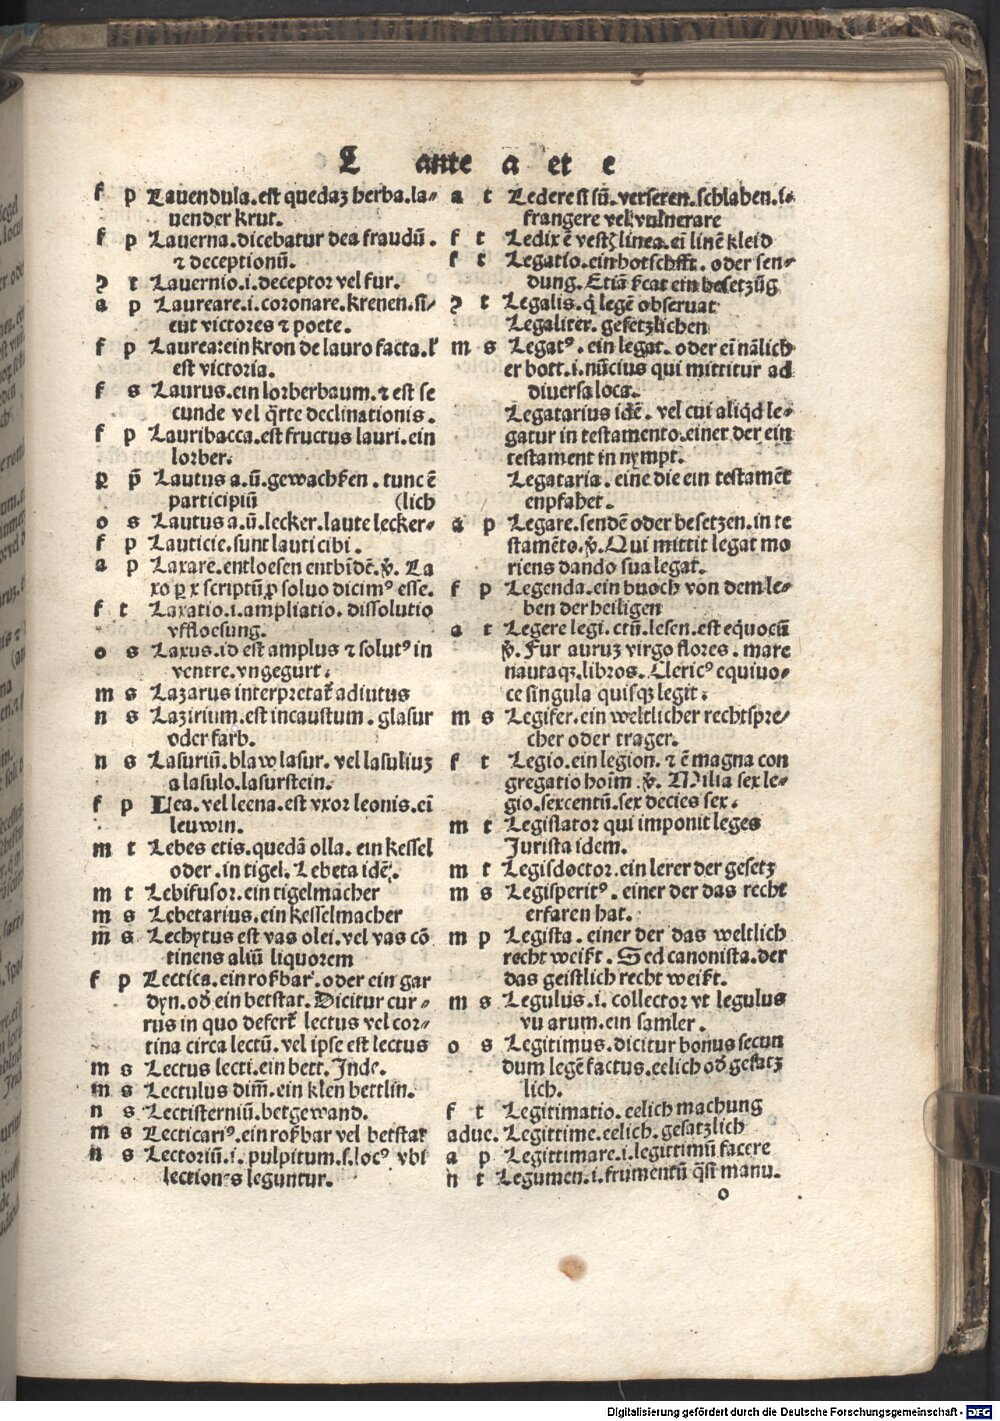 L ante a et e
f p Lauendula.est quedaʒ herba.la⸗
uender krut.
f p Lauerna.dicebatur dea fraudū.
⁊ deceptionū.
ꝛ t Lauernio.i.deceptor vel fur.
a p Laureare.i.coronare.krenen.si⸗
cut victores ⁊ poete.
f p Laurea:ein kron de lauro facta.l'
est victoria.
f s Laurus.ein lorberbaum.⁊ est se
cunde vel q̄rte declinationis.
f p Lauribacca.est fructus lauri.ein
lorber.
p p̄ Lautus a.ū.gewachſen.tunc ē
participiū (lich
o s Lautus a.ū.lecker.laute lecker⸗
f p Lauticie.sunt lauti cibi.
a p Laxare.entloesen entbīdē.v̄. La
xo ꝑ x scriptū ꝓ soluo dicimꝰ esse.
f t Laxatio.i.ampliatio.dissolutio
vffloesung.
o s Laxus.id est amplus ⁊ solutꝰ in
ventre.vngegurt.
m s Lazarus interpretat̄ adiutus
n s Lazirium.est incaustum.glasur
oder farb.
n s Lasuriū.blaw lasur.vel lasuliuʒ
a lasulo.lasurstein.
f p Lea.vel leena.est vxor leonis.eī
leuwin.
m t Lebes etis.quedā olla.ein kessel
oder.in tigel.Lebeta idē.
m t Lebifusor.ein tigelmacher
m s Lebetarius.ein kesselmacher
m̄ s Lechytus est vas olei.vel vas cō
tinens aliū liquorem
f p Lectica.ein roßbar.oder ein gar
dyn.od̄ ein betstat.Dicitur cur⸗
rus in quo defert̄ lectus vel cor⸗
tina circa lectū.vel ipse est lectus
m s Lectus lecti.ein bett.Inde.
m s Lectulus dim̄.ein klen bettlin.
n s Lectisterniū.betgewand.
m s Lecticariꝰ.ein roßbar vel betstat
n s Lectoriū.i.pulpitum.s.locꝰ vbi
lectiones leguntur.
a t Ledere si sū.verseren.schlahen.i.
frangere vel vulnerare
f t Ledix ē vestꝭ linea.eī linē kleid
f t Legatio.ein botschfft.oder sen⸗
dung.Etiā s̄cat ein besetzūg
ꝛ t Legalis.q̄ legē obseruat
Legaliter.gesetzlichen
m s Legatꝰ.ein legat.oder eī nālich
er bott.i.nūcius qui mittitur ad
diuersa loca.
Legatarius idē.vel cui aliqd̄ le⸗
gatur in testamento.einer der ein
testament in nympt.
Legataria.eine die ein testamēt
enpfahet.
a p Legare.sendē oder besetzen.in te
stamēto.v̄.Qui mittit legat mo
riens dando sua legat.
f p Legenda.ein buoch von dem le⸗
ben der heiligen
a t Legere legi.ctū.lesen.est equocū
v̄.Fur auruʒ virgo flores.mare
nautaqʒ.libros.Clericꝰ equiuo⸗
ce singula quisqʒ legit.
m s Legifer.ein weltlicher rechtspre⸗
cher oder trager.
f t Legio.ein legion.⁊ ē magna con
gregatio hoīm.v̄. Milia sex le⸗
gio.sexcentū.sex decies sex.
m t Legislator qui imponit leges
Jurista idem.
m t Legisdoctor.ein lerer der gesetz
m s Legisperitꝰ.einer der das recht
erfaren hat.
m p Legista.einer der das weltlich
recht weißt.Sed canonista.der
das geistlich recht weißt.
m s Legulus.i.collector vt legulus
vuarum.ein samler.
o s Legitimus.dicitur bonus secun
dum legē factus.eelich od̄ gesatz
lich.
f t Legitimatio.eelich machung
aduc. Legittime.eelich.gesatzlich
a p Legittimare.i.legittimū facere
n t Legumen.i.frumentū q̄si manu.
o
Digitalisierung gefördert durch die Deutsche Forschungsgemeinschaft - DFG